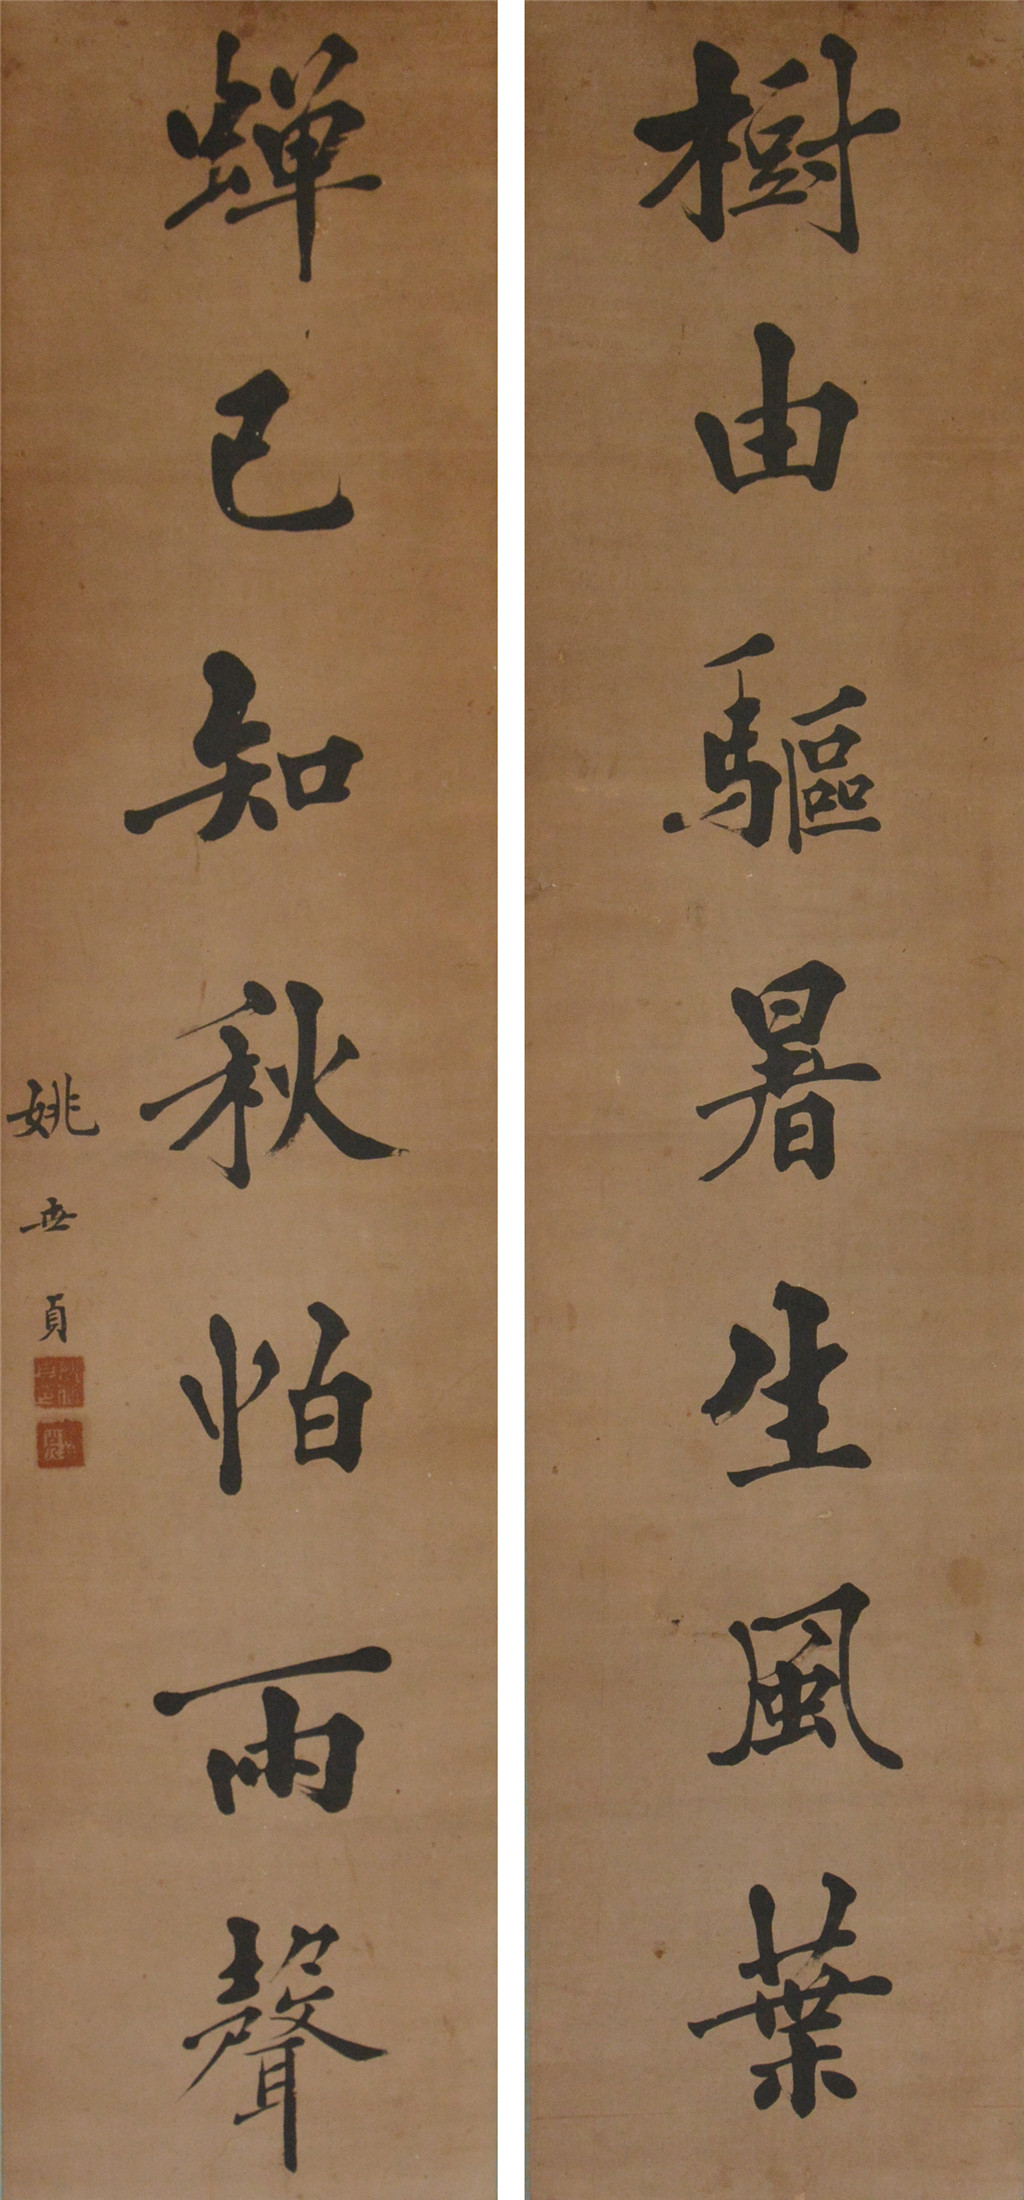 樹由驅暑生風葉
蟬已知秋怕雨聲
姚世貞